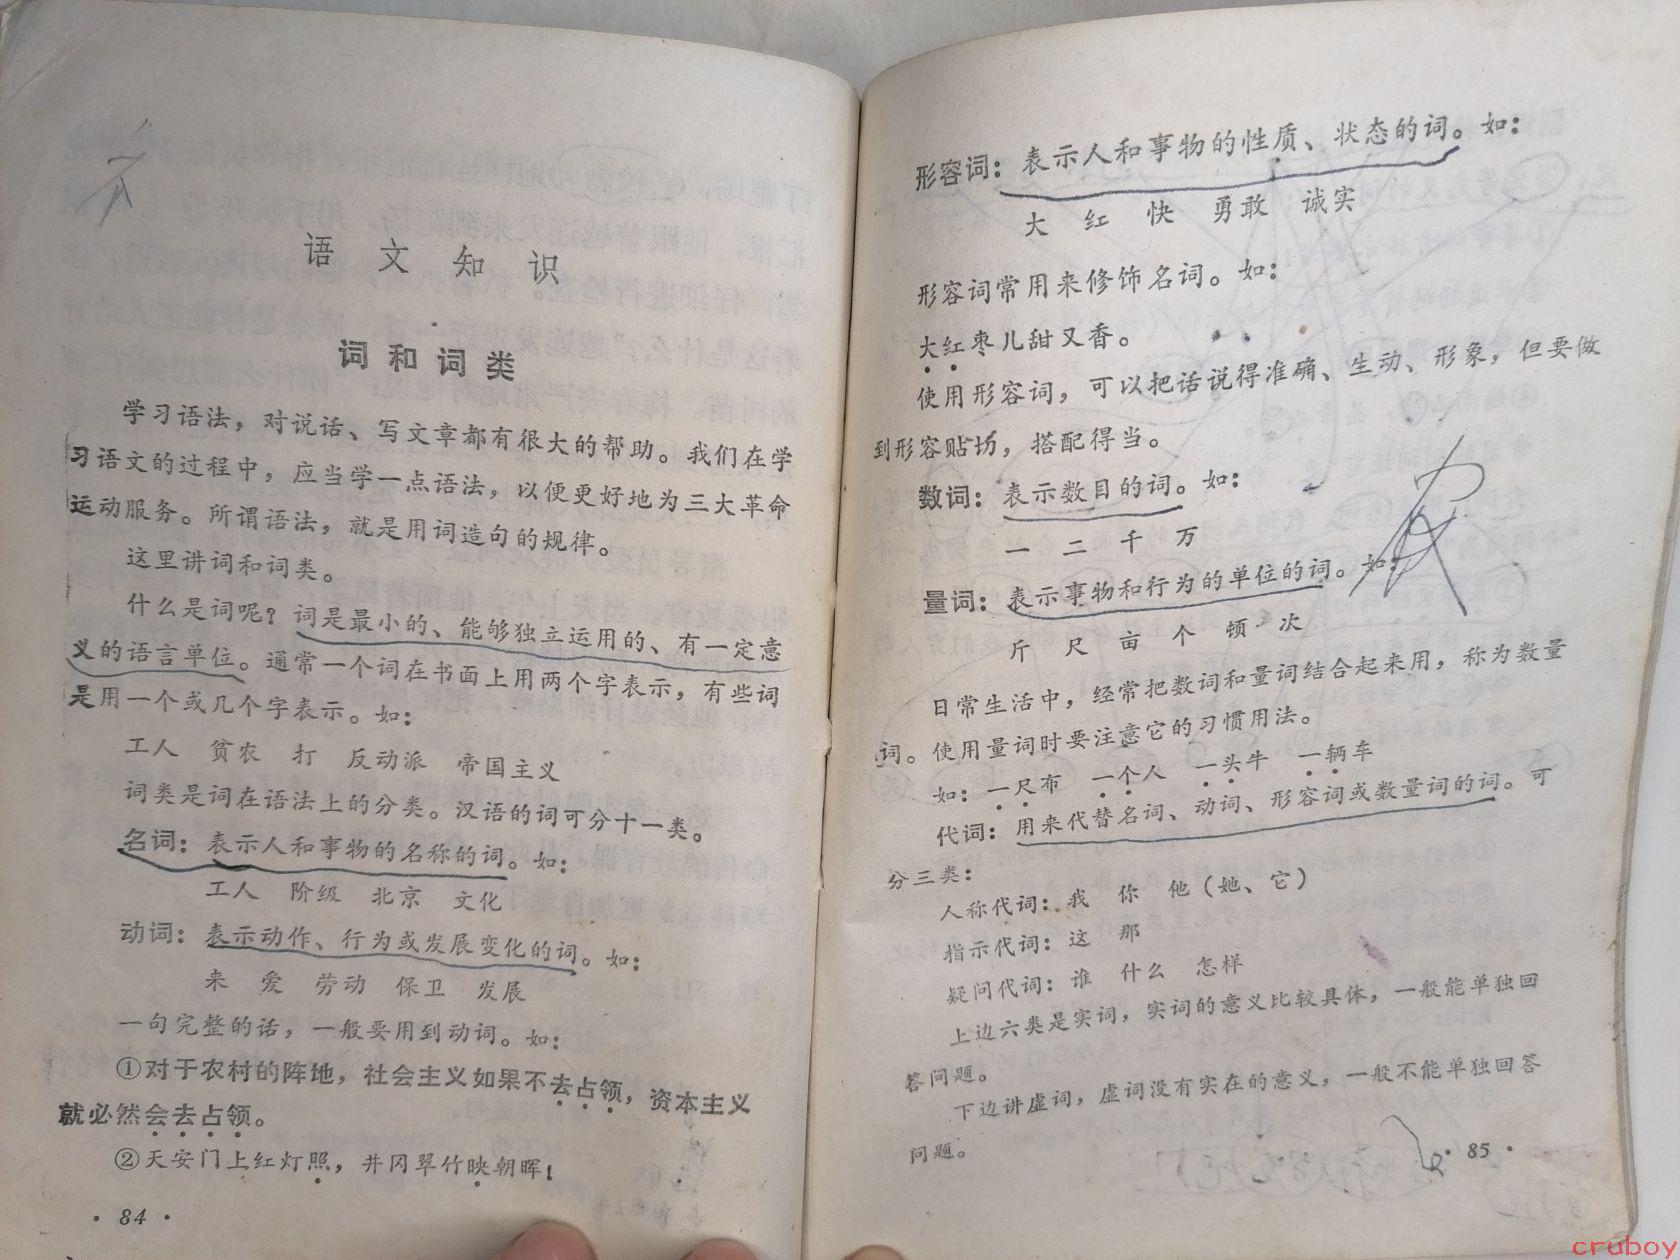 语文知识
词和词类
学习语法，对说话、写文章都有很大的帮助。我们在学
习语文的过程中，应当学一点语法，以便更好地为三大革命
运动服务。所谓语法，就是用词造句的规律。
这里讲词和词类。
什么是词呢？词是最小的、能够独立运用的、有一定意
义的语言单位。通常一个词在书面上用两个字表示，有些词
是用一个或几个字表示。如：
工人 贫农 打 反动派 帝国主义
词类是词在语法上的分类。汉语的词可分十一类。
名词：表示人和事物的名称的词。如：
工人 阶级 北京 文化
动词：表示动作、行为或发展变化的词。如：
来 爱 劳动 保卫 发展
一句完整的话，一般要用到动词。如：
①对于农村的阵地，社会主义如果不去占领，资本主义
就必然会去占领。
②天安门上红灯照，井冈翠竹映朝晖！
· 84 ·
形容词：表示人和事物的性质、状态的词。如：
大 红 快 勇敢 诚实
形容词常用来修饰名词。如：
大红枣儿甜又香。
使用形容词，可以把话说得准确、生动、形象，但要做
到形容贴切，搭配得当。
数词：表示数目的词。如：
一 二 千 万
量词：表示事物和行为的单位的词。如：
斤 尺 亩 个 顿 次
日常生活中，经常把数词和量词结合起来用，称为数量
词。使用量词时要注意它的习惯用法。
如：一尺布 一个人 一头牛 一辆车
代词：用来代替名词、动词、形容词或数量词的词。可
分三类：
人称代词：我 你 他（她、它）
指示代词：这 那
疑问代词：谁 什么 怎样
上边六类是实词，实词的意义比较具体，一般能单独回
答问题。
下边讲虚词，虚词没有实在的意义，一般不能单独回答
问题。
· 85 ·
cruboy